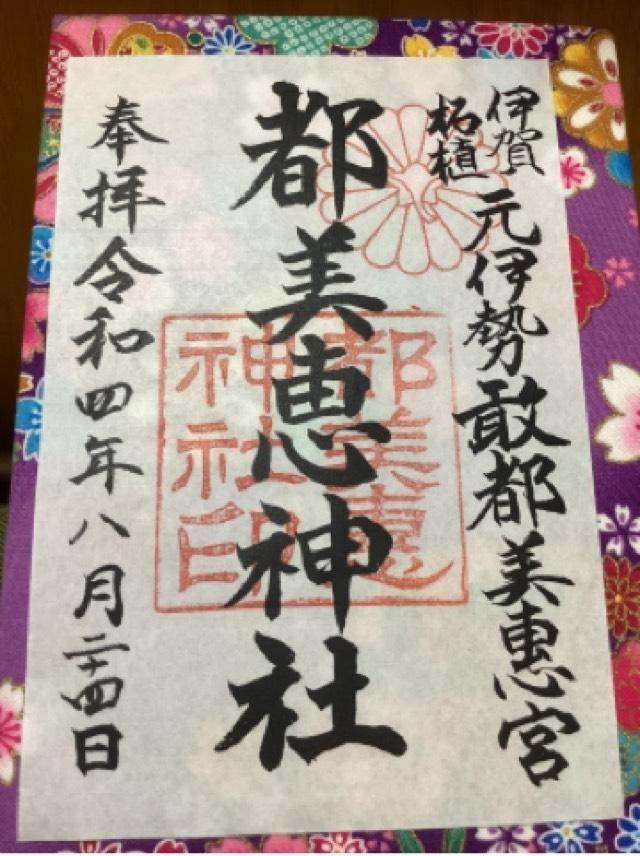 伊賀
柘植
元伊勢敢都美恵宮
都美恵神社
都美恵
神社印
奉拝令和四年八月二十四日